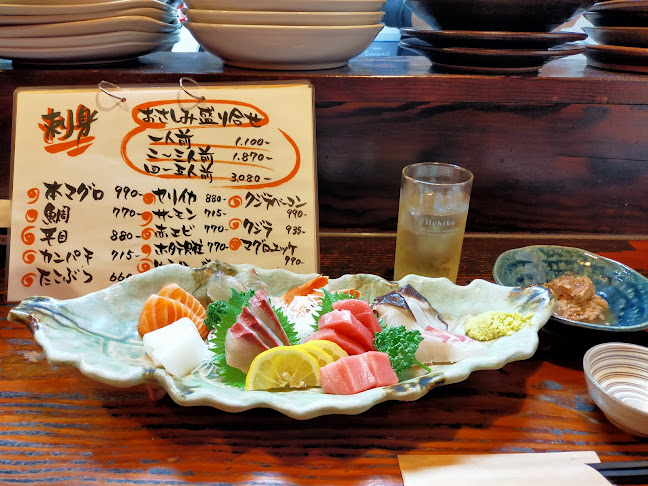 刺身
おさしみ盛り合せ
一人前 1.100-
二〜三人前 1.870-
四〜五人前 3080-
本マグロ 990-
鯛 770-
平目 880-
カンパチ 715-
たこぶつ 660
ヤリイカ 880-
サーモン 715-
ホエビ 770-
ホタテ貝柱 770-
クジラベーコン 990-
クジラ 935-
マグロユッケ 990-
iichiko